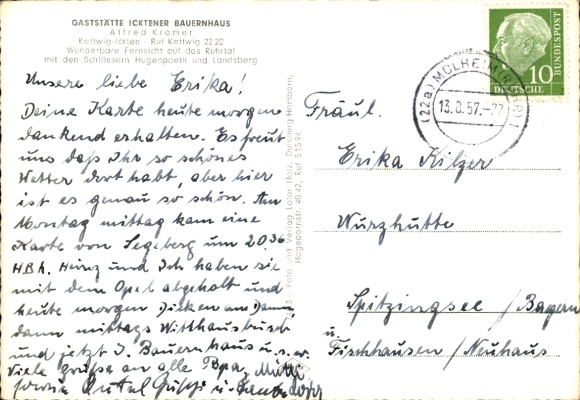 GASTSTÄTTE ICKTENER BAUERNHAUS
Alfred Kramer
Kettwig-Ickten - Ruf Kettwig 22 20
Wunderbare Fernsicht auf das Ruhrtal
mit den Schlössern Hugenpoeth und Landsberg
Unsere liebe Erika!
Deine Karte heute morgen
dankend erhalten. Es freut
uns daß Ihr so schönes
Wetter dort habt, aber hier
ist es genau so schön. Am
Montag mittag kam eine
Karte von Segeberg um 20.36
HBh. Heinz und Ich haben sie
mit dem Opel abgeholt und
heute morgen Dicken am Damm,
dann mittags Witthausbusch
und jetzt I. Bauernhaus u.s.w.
Viele Grüße an alle Opa, Mutti
sowie Onkel u. Tante
Foto und Verlag Lothar Holz, Duisburg-Hamborn,
Hagedornstr. 40 42, Ruf 5 15 94
DEUTSCHE BUNDESPOST
10
(22a) MÜLHEIM (RUHR) 1
13.8.57.-22
Fräul.
Erika Kilzer
Wurzhütte
Spitzingsee / Bayern
u
Fischhausen / Neuhaus